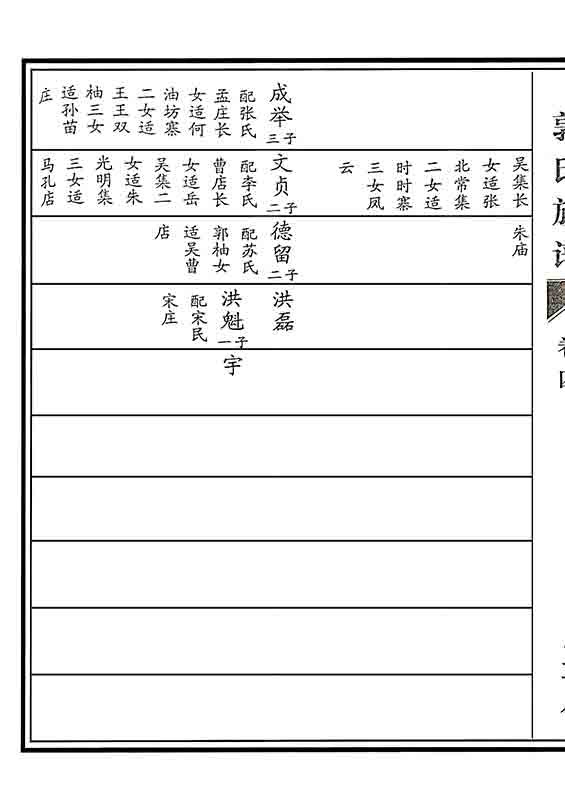 郭氏族谱
卷四
成举
三子
配张氏
孟庄长
女适何
油坊寨
二女适
王王双
柚三女
适孙苗
庄
吴集长
女适张
北常集
二女适
时时寨
三女凤
云
文贞
二子
配李氏
曹店长
女适岳
吴集二
女适朱
光明集
三女适
马孔店
朱庙
德留
二子
配苏氏
郭柚女
适吴曹
店
洪磊
洪魁
一子
配宋民
宋庄
宇